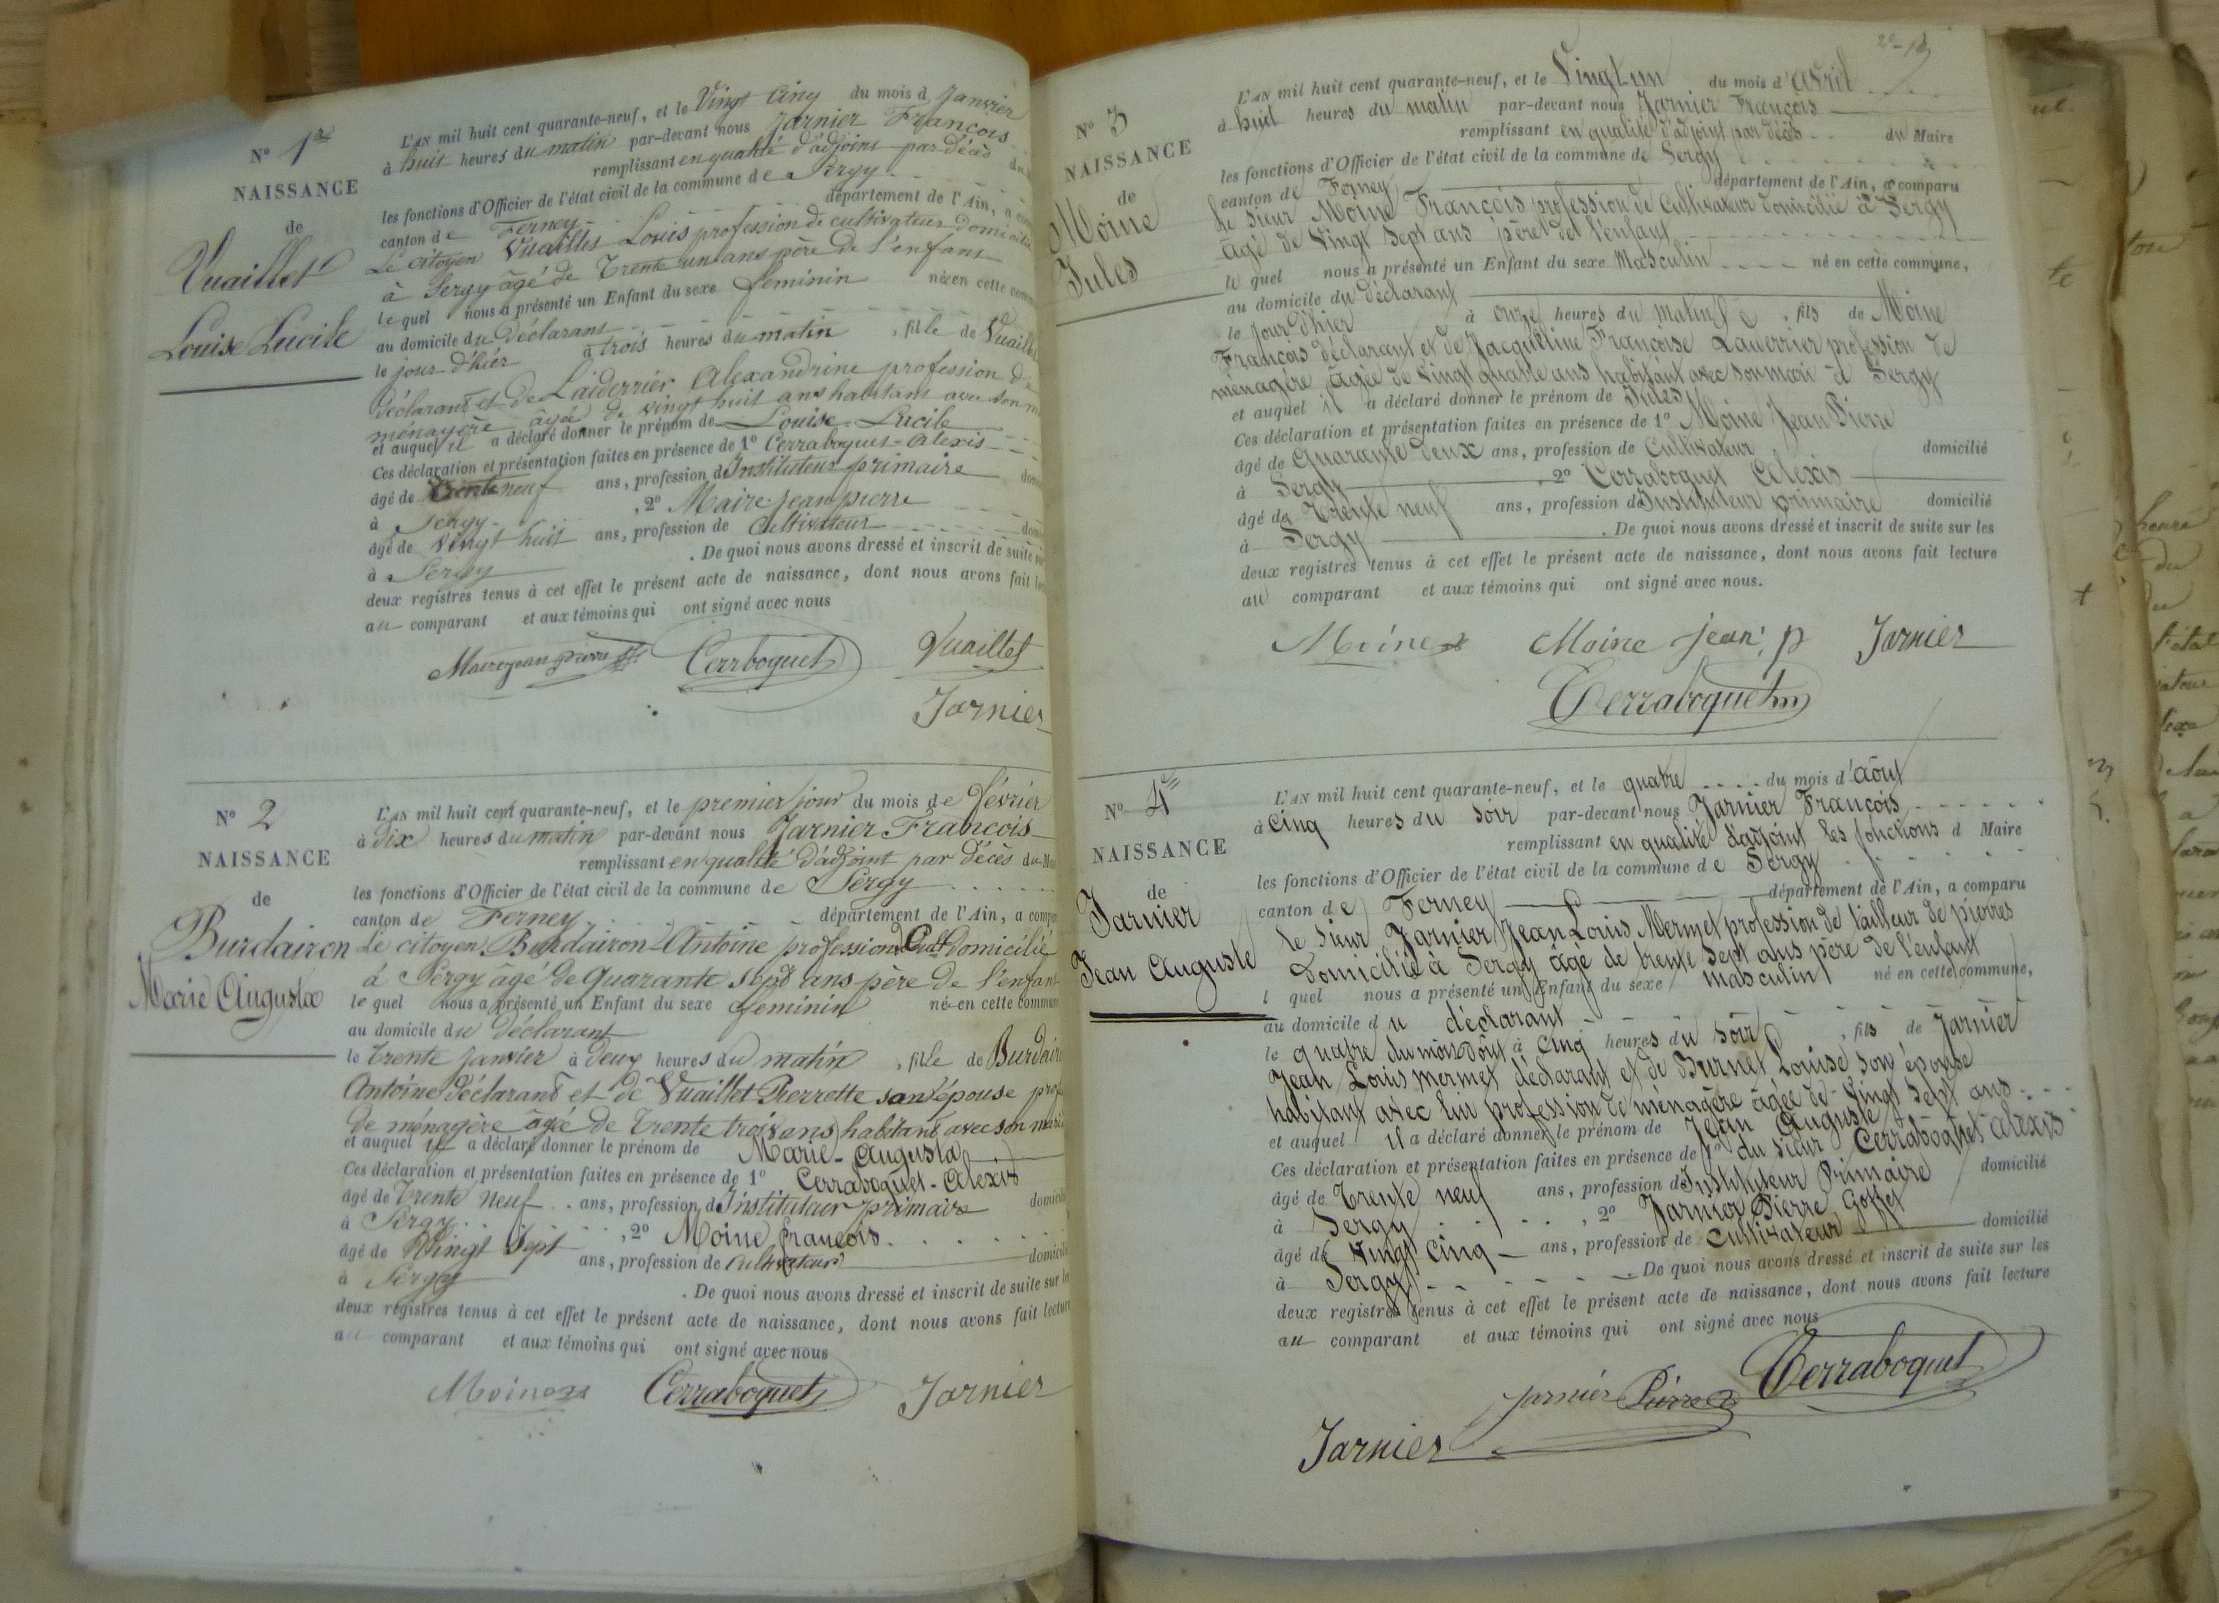 N° 1er
NAISSANCE
de
Vuaillet
Louise Lucile
L'AN mil huit cent quarante-neuf, et le Vingt Cinq du mois d Janvier
à huit heures du matin par-devant nous Jarnier François
remplissant en qualité d'adjoint par décès du
les fonctions d'Officier de l'état civil de la commune de Sergy
canton de Ferney département de l'Ain, a
Le citoyen Vuaillet Louis profession de cultivateur domicilié
à Sergy âgé de Trente un ans père de l'enfant
le quel nous a présenté un Enfant du sexe féminin né en cette
au domicile du déclarant
le jour d'hier à trois heures du matin, fille de Vuaillet
déclarant et de Laiderrier Alexandrine profession de
ménagère âgée de vingt huit ans habitant avec son
et auquel il a déclaré donner le prénom de Louise-Lucile
Ces déclaration et présentation faites en présence de 1° Cerraboquet-Alexis
âgé de Trente neuf ans, profession d'Instituteur primaire
à Sergy, 2° Maire Jean pierre
âgé de Vingt huit ans, profession de Cultivateur
à Sergy. De quoi nous avons dressé et inscrit de suite
deux registres tenus à cet effet le présent acte de naissance, dont nous avons fait
au comparant et aux témoins qui ont signé avec nous
Maire jean pierre Cerrboquet Vuaillet
Jarnier
N° 2
NAISSANCE
de
Burdairon
Marie Augusta
L'AN mil huit cent quarante-neuf, et le premier jour du mois de Février
à dix heures du matin par-devant nous Jarnier François
remplissant en qualité d'adjoint par décès du
les fonctions d'Officier de l'état civil de la commune de Sergy
canton de Ferney département de l'Ain, a
Le citoyen Burdairon Antoine profession Cult domicilié
à Sergy âgé de quarante sept ans père de l'enfant
le quel nous a présenté un Enfant du sexe féminin né en cette commune
au domicile du déclarant
le trente janvier à deux heures du matin, fille de Burdair
Antoine déclarant et de Vuaillet Pierrette son épouse
de ménagère âgée de Trente trois ans habitant avec son mari
et auquel il a déclaré donner le prénom de Marie-Augusta
Ces déclaration et présentation faites en présence de 1° Cerraboquet-Alexis
âgé de Trente neuf ans, profession d'Instituteur primaire
à Sergy, 2° Moine françois
âgé de Vingt Sept ans, profession de cultivateur
à Sergy. De quoi nous avons dressé et inscrit de suite sur
deux registres tenus à cet effet le présent acte de naissance, dont nous avons fait lecture
au comparant et aux témoins qui ont signé avec nous
Moine Cerraboquet Jarnier
N° 3
NAISSANCE
de
Moine
Jules
L'AN mil huit cent quarante-neuf, et le Vingt un du mois d'avril
à huit heures du matin par-devant nous Jarnier François
remplissant en qualité d'adjoint par décès du Maire
les fonctions d'Officier de l'état civil de la commune de Sergy
canton de Ferney département de l'Ain, a comparu
le sieur Moine François profession de Cultivateur domicilié à Sergy
âgé de Vingt Sept ans père de l'enfant
le quel nous a présenté un Enfant du sexe Masculin né en cette commune,
au domicile du déclarant
le jour d'hier à onze heures du matin, fils de Moine
François déclarant et de Jacqueline Françoise profession de
ménagère âgée de vingt quatre ans habitant avec son mari à Sergy
et auquel il a déclaré donner le prénom de Jules
Ces déclaration et présentation faites en présence de 1° Moine Jean Pierre
âgé de Quarante deux ans, profession de Cultivateur domicilié
à Sergy, 2° Cerraboquet Alexis
âgé de Trente neuf ans, profession d'Instituteur primaire domicilié
à Sergy. De quoi nous avons dressé et inscrit de suite sur les
deux registres tenus à cet effet le présent acte de naissance, dont nous avons fait lecture
au comparant et aux témoins qui ont signé avec nous.
Moine Moine jean p Jarnier
Cerraboquet
N° 4
NAISSANCE
de
Jarnier
Jean Auguste
L'AN mil huit cent quarante-neuf, et le quatre du mois d'août
à cinq heures du soir par-devant nous Jarnier François
remplissant en qualité d'adjoint les fonctions d Maire
les fonctions d'Officier de l'état civil de la commune de Sergy
canton de Ferney département de l'Ain, a comparu
le sieur Jarnier Jean Louis Mermet profession de tailleur de pierres
Domicilié à Sergy âgé de trente sept ans père de l'enfant
l quel nous a présenté un Enfant du sexe masculin né en cette commune,
au domicile du déclarant
le quatre du mois d'août à cinq heures du soir, fils de Jarnier
Jean Louis Mermet déclarant et de Burnet Louise son épouse
habitant avec lui profession de ménagère âgée de Vingt Sept ans
et auquel il a déclaré donner le prénom de Jean Auguste
Ces déclaration et présentation faites en présence de 1° du sieur Cerraboquet Alexis
âgé de Trente neuf ans, profession d'Instituteur Primaire domicilié
à Sergy, 2° Jarnier Pierre Goffet
âgé de Vingt cinq ans, profession de Cultivateur domicilié
à Sergy. De quoi nous avons dressé et inscrit de suite sur les
deux registres tenus à cet effet le présent acte de naissance, dont nous avons fait lecture
au comparant et aux témoins qui ont signé avec nous
Jarnier jarnier Pierre Cerraboquet